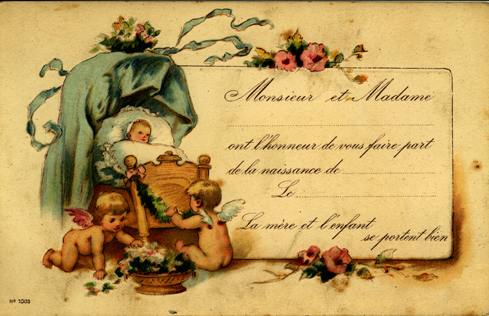 Monsieur et Madame
ont l'honneur de vous faire part
de la naissance de
Le
La mère et l'enfant
se portent bien
Nº 1003